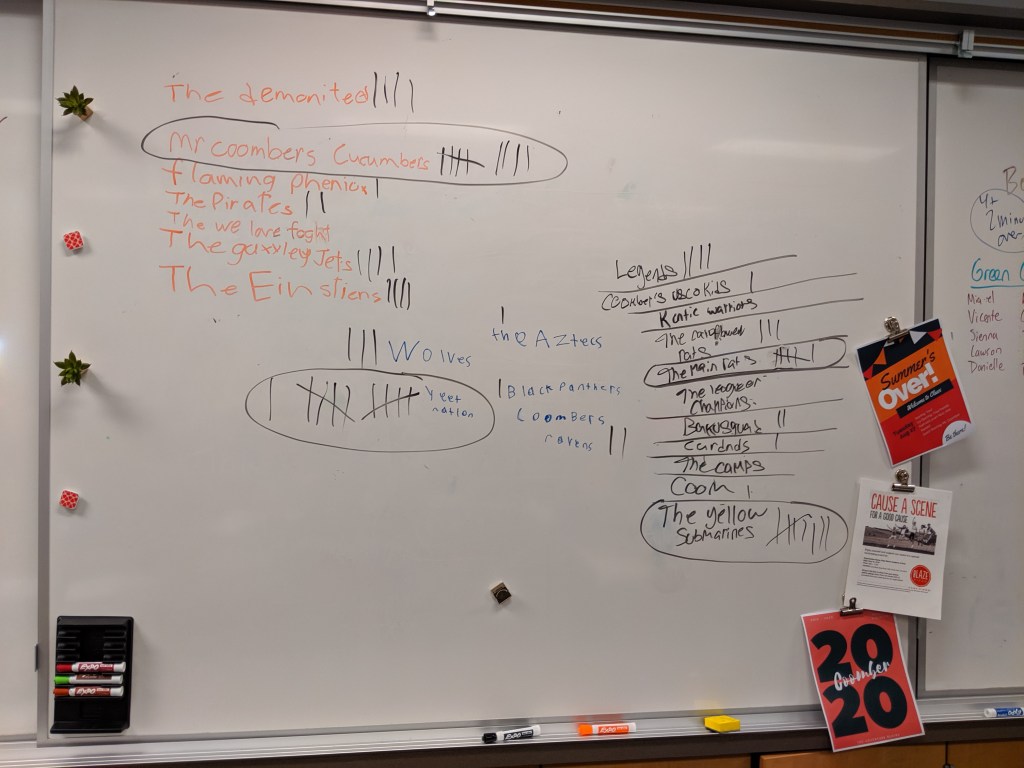 The demonited
Mr coombers Cucumbers
flaming phenios
The Pirates
The we love foght
The gaxyley Jets
The Einstiens
Wolves
Yeet
nation
the Aztecs
Black panthers
Coombers
ravens
Legends
Coombers vsco kids
Kentic warriors
The
rats
The Main rats
The
Champions.
The camps
Coom
The yellow
submarines
Summer's
Over!
Welcome to Class
Be there!
CAUSE A SCENE
FOR A GOOD CAUSE
20
Coomber
20
4+
2 minu
over
Green
Vicente
Sienna
Lauron
Danielle
EXPO
EXPO
EXPO
EXPO
EXPO